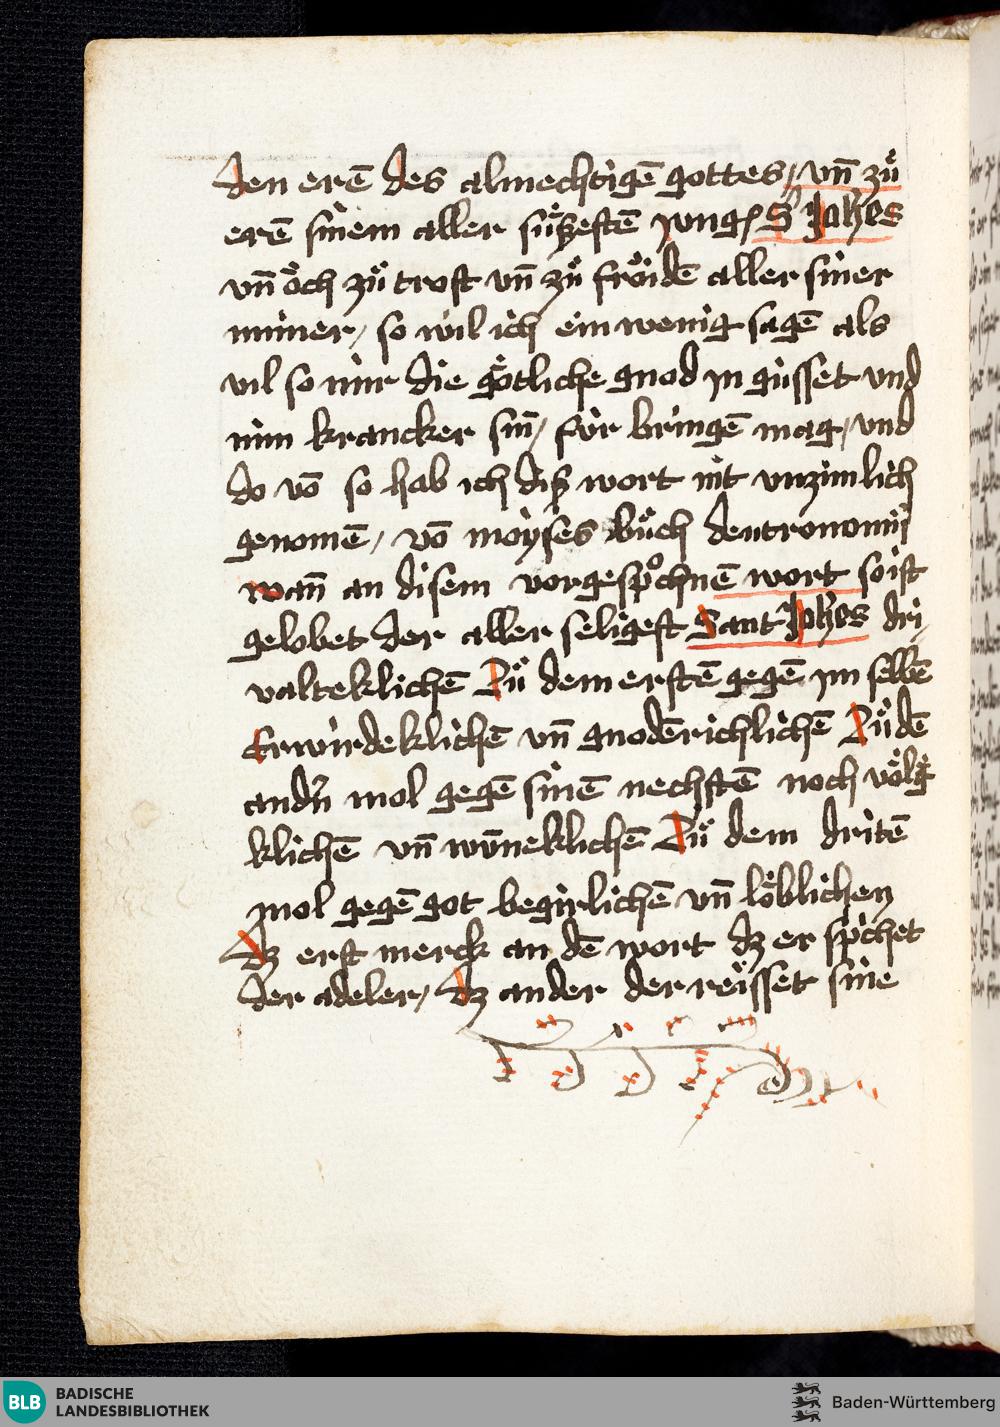 den erē des almechtigē gottes / vn̄ zů
erē sinem aller sůszestē jung[er] S Johes
vn̄ ǒch zů trost vn̄ zů frǒidē aller siner
miner / so wil ich ein wenig sagē als
vil so mir die gǒtliche gnod jn gússet vnd
min krancker sin̄ / fúr bringē mag / vnd
do vō so hab ich disz wort nit vnzimlich
genomē / vō moÿses bůch deutronomij
wan̄ an disem vorgespͦchnē wort so ist
gelobet der aller seligest Sant Johes dri
valteklichē Zů dem erstē gegē jm selbē
Erwirdeklichē vn̄ gnodērichlichē Zů dē
andn̄ mol gegē sinē nechstē noch vǒlg
klichē vn̄ wūneklichē Zů dem dritē
mol gegē got begirlichē vn̄ lǒblichen
Dz erst merck an dē wort dz er spͥchet
der adeler / dz ander der reisset sine
BLB BADISCHE LANDESBIBLIOTHEK
Baden-Württemberg